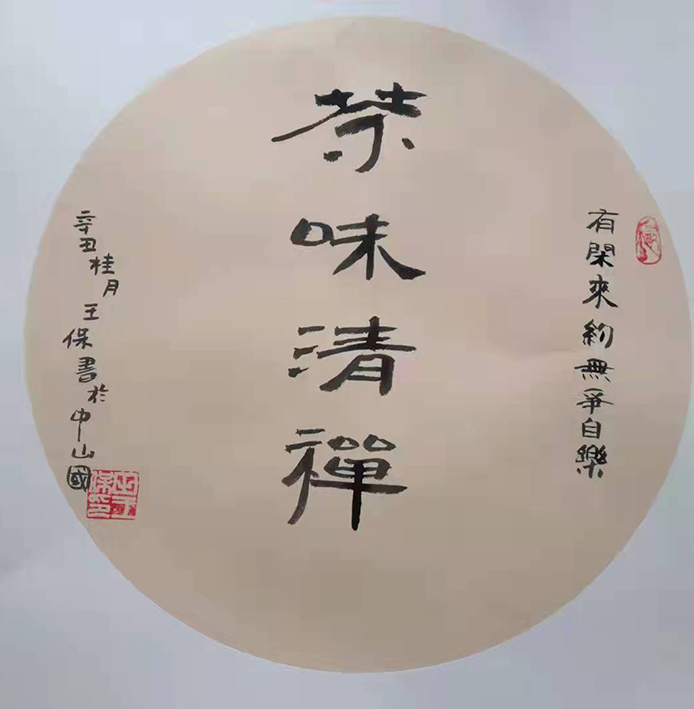 有閑來約無爭自樂
茶味清禪
辛丑桂月王保書於中山國